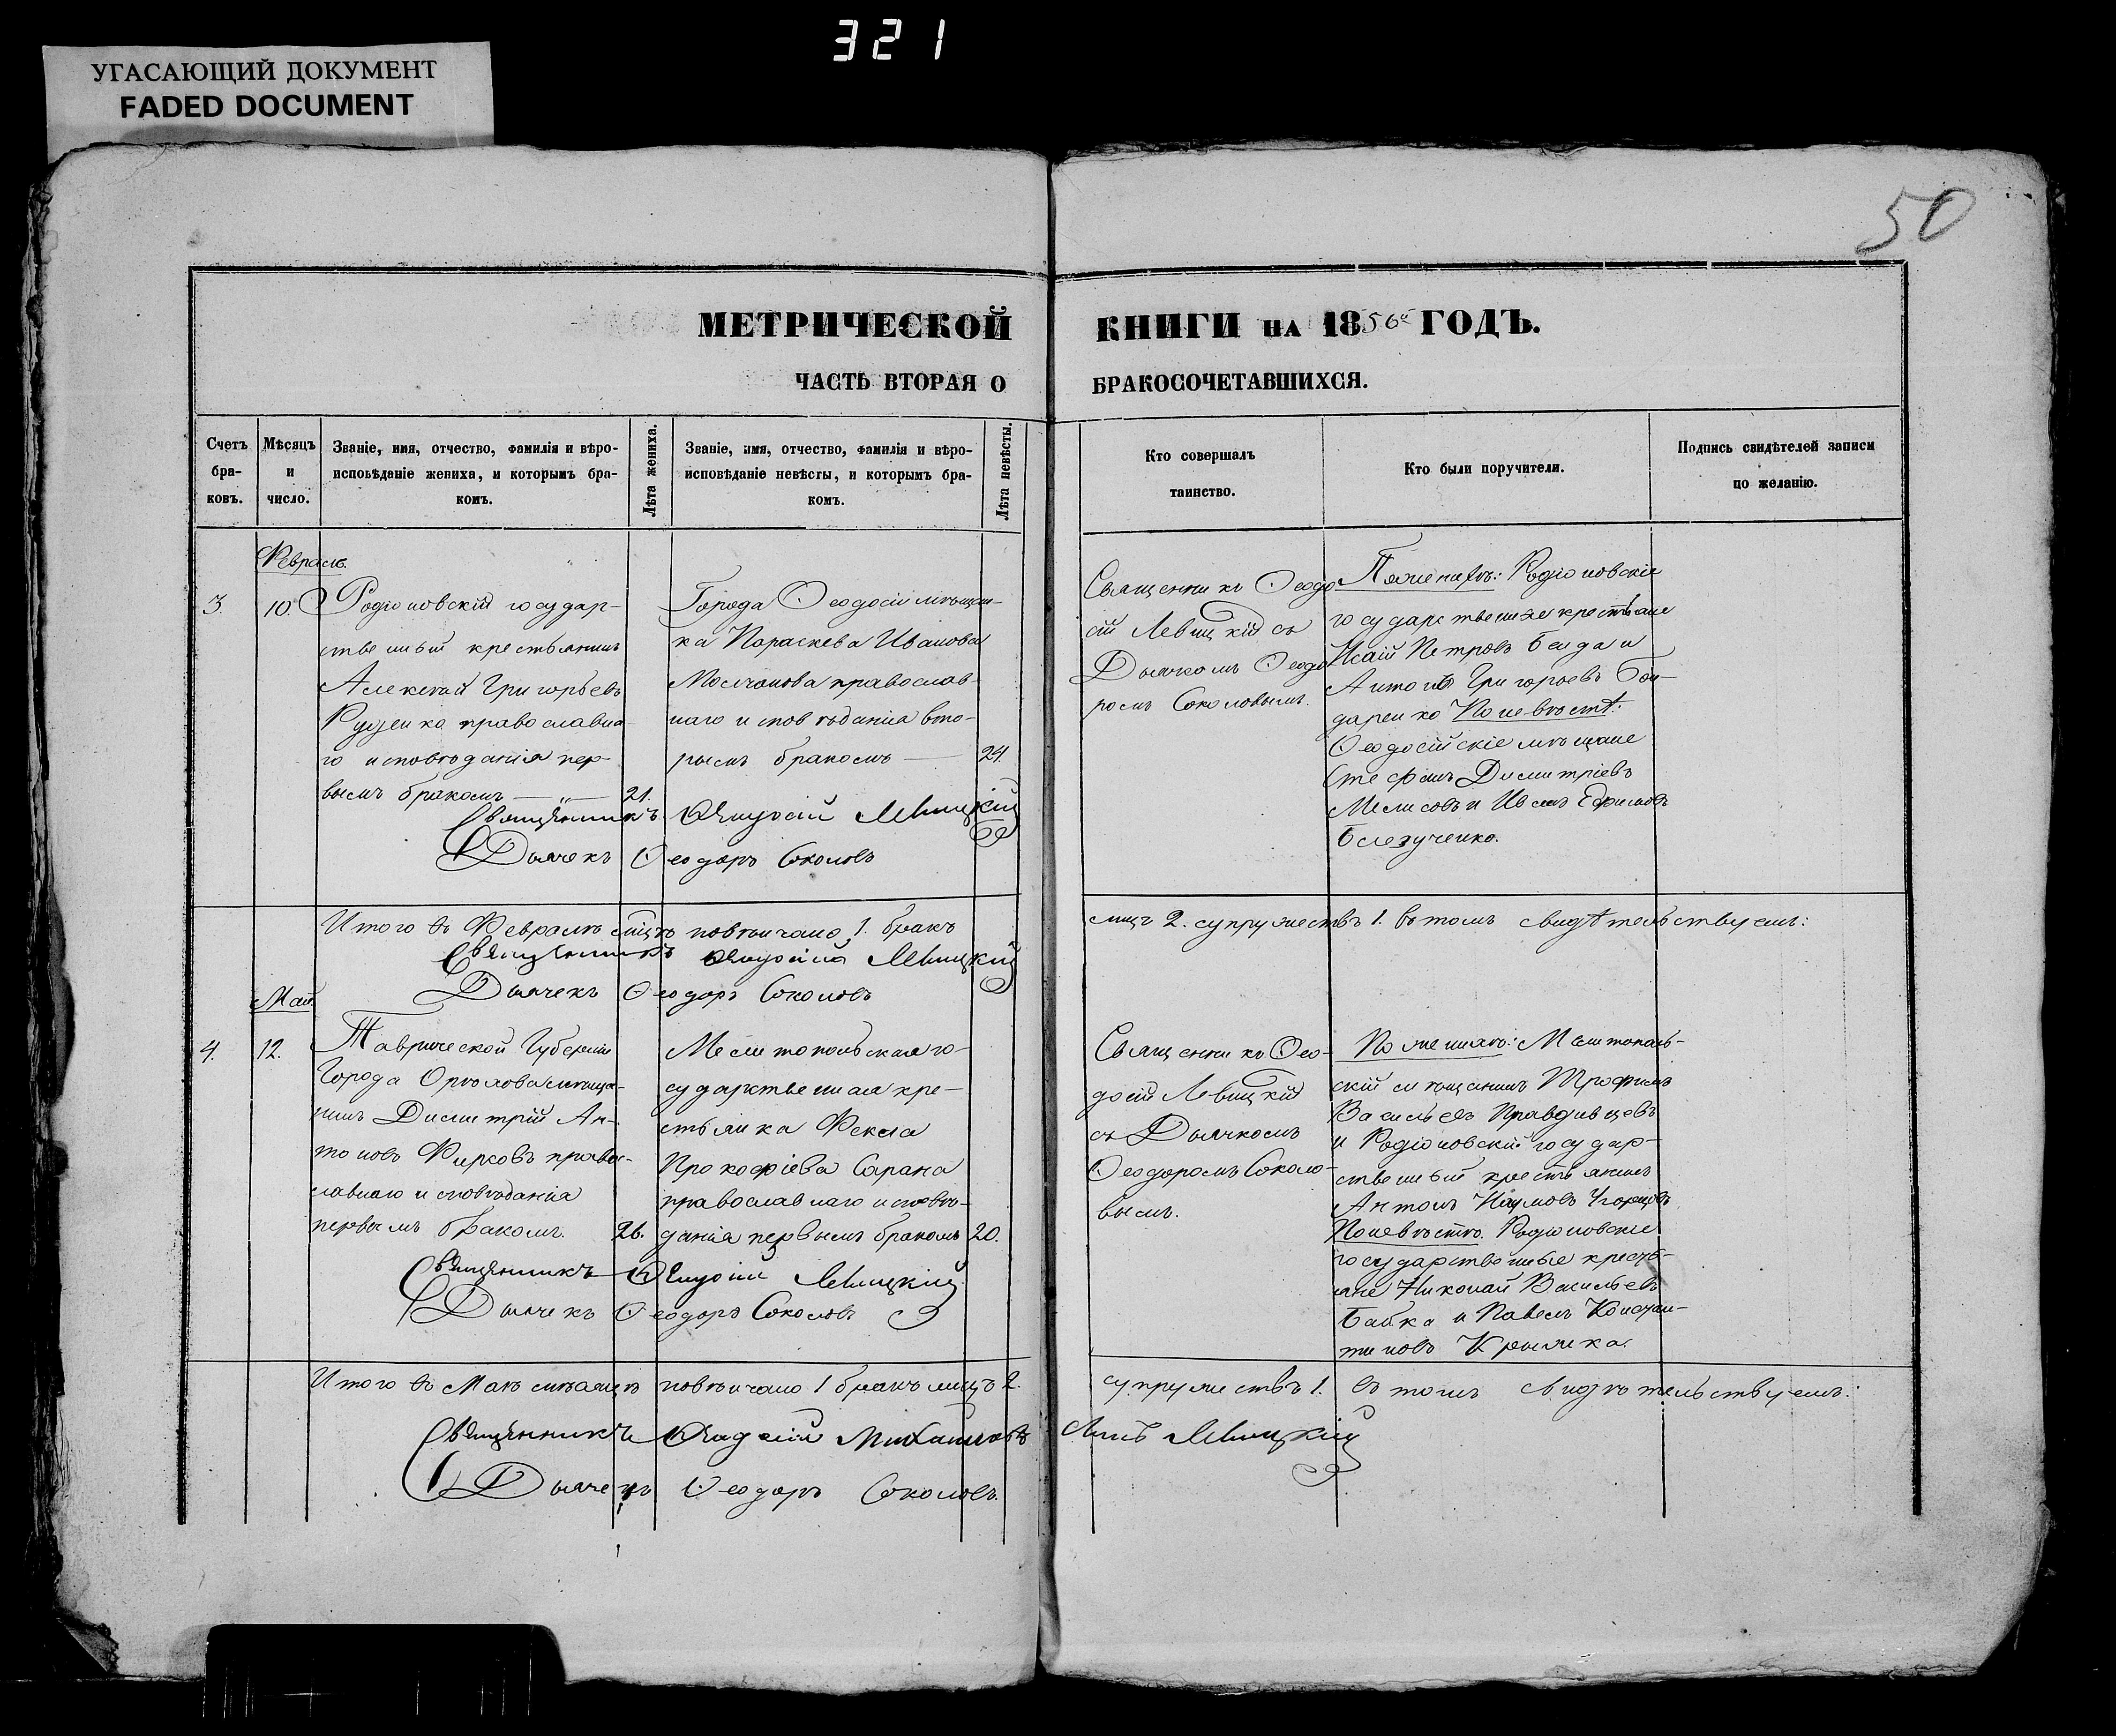 321
УГАСАЮЩИЙ ДОКУМЕНТ
FADED DOCUMENT
50
МЕТРИЧЕСКОЙ КНИГИ НА 1856й ГОДЪ.
ЧАСТЬ ВТОРАЯ О БРАКОСОЧЕТАВШИХСЯ.
Счетъ бра-ковъ.
Мѣсяцъ и число.
Званіе, имя, отчество, фамилія и вѣро-
исповѣданіе жениха, и которымъ бра-
комъ.
Лѣта жениха.
Званіе, имя, отчество, фамилія и вѣро-
исповѣданіе невѣсты, и которымъ бра-
комъ.
Лѣта невѣсты.
Кто совершалъ
таинство.
Кто были поручители.
Подпись свидѣтелей записи
по желанію.
Февраль.
3. 10.
Родіоновскій государ-
ственный крестьянинъ
Алексѣй Григорьевъ
Руденко православна-
го исповѣданія пер-
вымъ бракомъ — „ — 21.
Города Ѳеодосіи мѣщан-
ка Параскева Иванова
Молчанова православ-
наго исповѣданія вто-
рымъ бракомъ — 24.
Священникъ Ѳеодосій Левицкій
Дьячекъ Ѳеодоръ Соколовъ
Священникъ Ѳеодо
сій Левицкій съ
Дьячкомъ Ѳеодо
ромъ Соколовымъ.
По женихѣ: Родіоновскіе
государственные крестьяне
Исаій Петровъ Беида и
Антонъ Григорьевъ Бон-
даренко По невѣстѣ:
Ѳеодосійскіе мѣщане
Стефанъ Димитріевъ
и Иванъ Ефимовъ
Итого въ Февралѣ мцѣ повѣнчано 1. бракъ
лицъ 2. супружествъ 1. въ томъ свидѣтельствуемъ:
Священникъ Ѳеодосій Левицкій
Дьячекъ Ѳеодоръ Соколовъ
Май
4. 12.
Таврической Губерніи
Города Орѣхова мѣща-
нинъ Димитрій Ан-
тоновъ Фирковъ право-
славнаго исповѣданія
первымъ бракомъ. 26.
Мелитопольская го-
сударственная кре-
стьянка Фекла
Прокофіева Сарана
православнаго исповѣ-
данія первымъ бракомъ 20.
Священникъ Ѳеодосій Левицкій
Дьячекъ Ѳеодоръ Соколовъ
Священникъ Ѳео-
досій Левицкій
съ Дьячкомъ
Ѳеодоромъ Соколо-
вымъ.
По женихѣ: Мелитополь-
скій мѣщанинъ Трофимъ
Васильевъ Правдивцевъ
и Родіоновскій государ-
ственный крестьянинъ
Антонъ Наумовъ
По невѣстѣ. Родіоновскіе
государственные кресть-
яне Николай Васильевъ
Бабка и Павелъ Констан-
тиновъ
Итого въ Маѣ мѣсяцѣ повѣнчано 1 бракъ лицъ 2.
супружествъ 1. въ томъ свидѣтельствуемъ:
Священникъ Ѳеодосій Михайловъ
Сынъ Левицкій
Дьячекъ Ѳеодоръ Соколовъ.